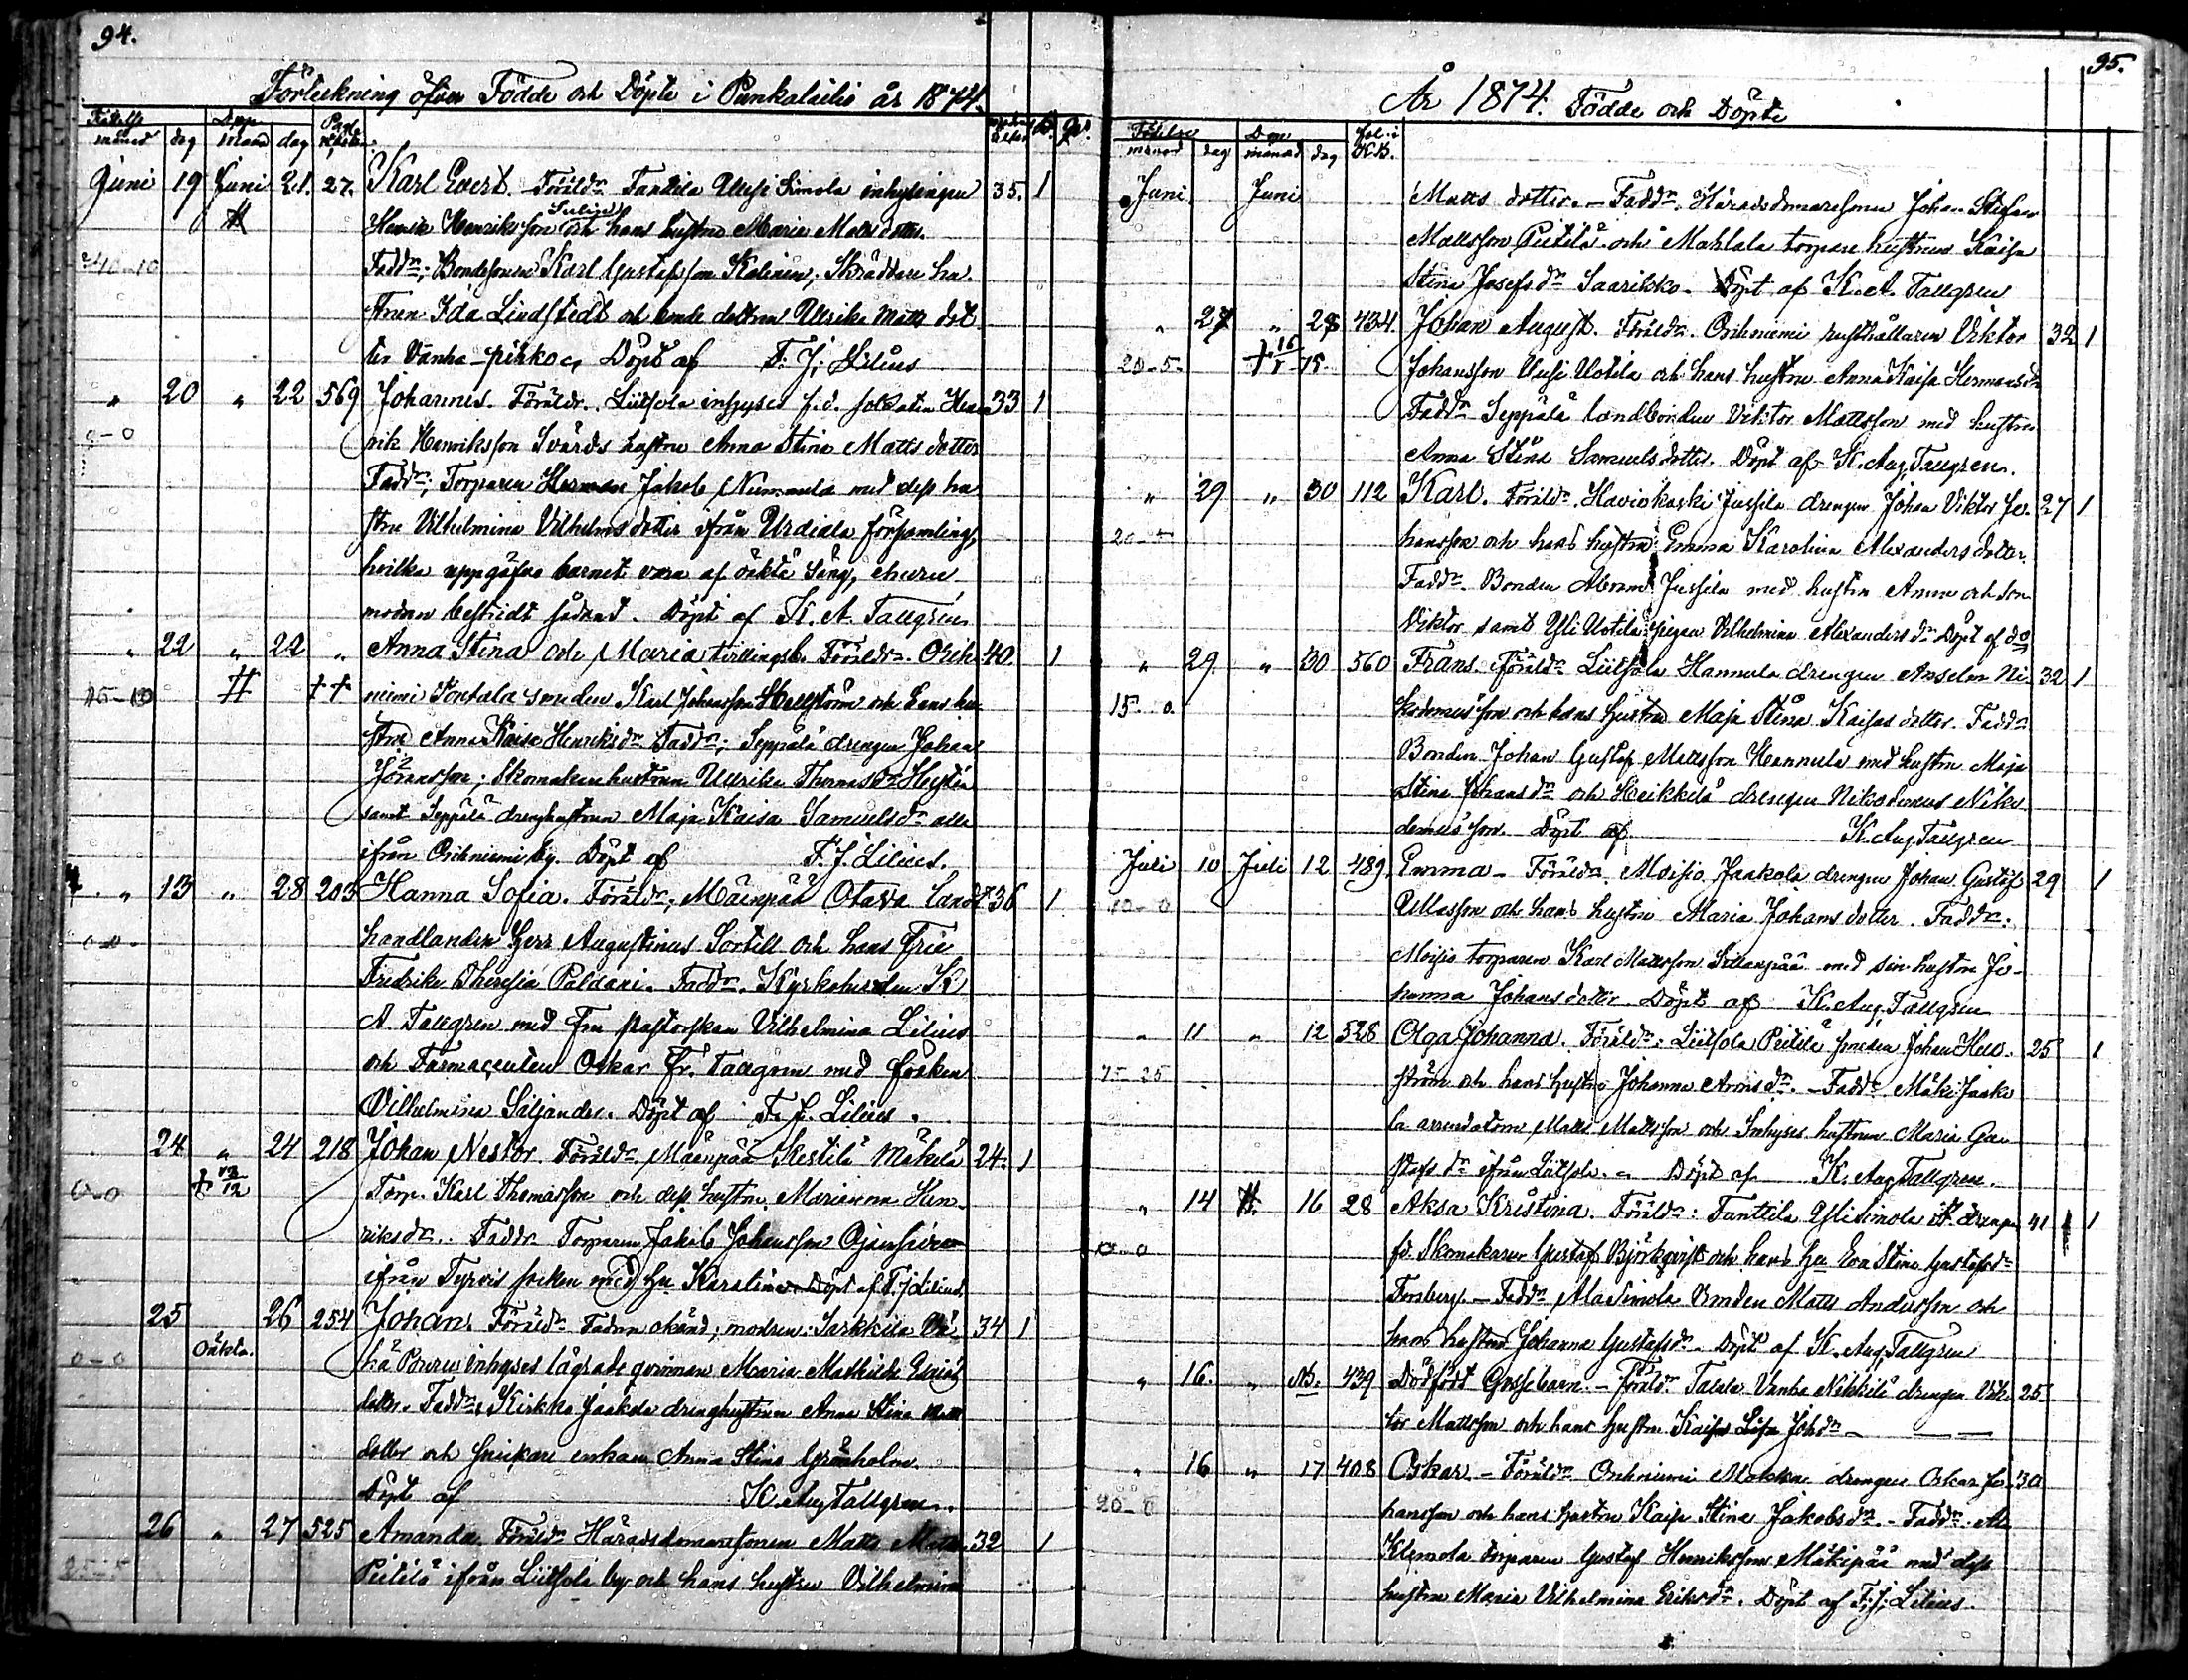 94.
Förteckning öfver Födde och Döpte i Punkalaitio år 1874.
månad dag månad dag
Juni 19 Juni 21. 27. Karl Evert. Föräldr. Fanttila Uusi Simola inhysingen 35. 1
Henrik Henriksson och hans hustru Maria Matts dotter.
Faddr; Bondesonen Karl Gustafsson; Skräddare hu-
strun Ida Lindstedt och bonde dottren Ulrika Matts dot
ter Vanha-pirko. Döpt af F. J. Lilius
" 20 " 22 569 Johannes. Föräldr. Liitsola inhyses f.d. soldaten Hen 33 1
0-0 rik Henriksson Svärds hustru Anna Stina Matts dotter
Faddr; Torparen Herman Jakob Nummela med dess hu
stru Vilhelmina Vilhelms dotter ifrån Urdiala församling,
hvilka uppgåfvo barnet vara af äkta säng, ehuru
modren bestridt sådant. Döpt af K. A. Tallgren
" 22 " 22 " Anna Stina och Maria tvillingsb. Föräldr. Orih 40 1
++ niemi Tontala smeden Karl Johansson Hellström och hans hu
stru Anna Kaisa Henriksdr Faddr; Seppälä drengen Johan
Göransson; Skomakarehustrun Ulrika Thomasdr
samt Seppälä drenghustrun Maja Kaisa Samuelsdr alla
ifrån Oriniemi by. Döpt af F. J. Lilius.
" 13 " 28 203 Hanna Sofia. Föräldr; Mäenpää Otava landt 36 1
handlanden Herr Augustinus Sortell och hans Fru
Fredrika Theresia Paldani. Faddr. Kyrkoherden K
A. Tallgren med Fru Pastorskan Vilhelmina Lilius
och Farmaceuten Oskar Fr. Tallgren med fröken
Vilhelmina Siljander. Döpt af F. J. Lilius.
24 " 24 218 Johan Nestor. Föräldr. Mäenpää Kestilä Mäkelä 24. 1
0-0 Torp. Karl Thomasson och dess hustru Mariana Hen-
riksdr. Faddr Torparen Jakob Johansson
ifrån Tyrvis socken med hu Karolina Döpt af F. J. Lilius
25 26 254 Johan. Föräldr Fadren okänd; modren: Sarkkila 34 1
0-0 Oäkta. inhyses lägrade qvinnan Maria Mathilda Esaias
dotter. Faddr. Kirkko Jaakola drenghustrun Anna Stina Matts
dotter och snickare enkan Anna Stina Grönholm.
Döpt af K. Aug Tallgren.
26 " 27 525 Amanda. Föräldr Häradsdomaresonen Matts Matts. 32 1
Pietilä ifrån Liitsola by och hans hustru Vilhelmina
95.
År 1874. Födde och Döpte
Födelse Dop fol. i
månad dag månad dag KB.
Juni Juni Matts dotter. — Faddr. Häradsdomaresonen Johan Stefan
Mattsson Pietilä och Mahlala torpare hustrun Kaisa
Stina Josefsdr Saarikko. Döpt af K. A. Tallgren
" 27 " 28 434. Johan August. Föräldr. Orihniemi rusthållaren Viktor 32 1
20-5- Johansson Uusi Uotila och hans hustru Anna Kaisa Hermansdr
Faddr Seppälä landbonden Viktor Mattsson med hustru
Anna Stina Samuels dotter. Döpt af K. Aug Tallgren.
" 29 " 30 112 Karl. Föräldr. Haviokoski Jussila drengen Johan Viktor Jo- 27 1
hansson och hans hustru Emma Karolina Alexanders dotter.
Faddr. Bonden Abram Jussila med hustru Anna och son
Viktor samt Yli Uotila pigan Vilhelmina Alexanders dr Döpt af do
" 29 " 30 560 Frans. Föräldr Liitsola Hannula drengen Anselm Ni- 32 1
15-0. kodemusson och hans hustru Maja Stina Kaisas dotter. Faddr
Bonden Johan Gustaf Mattsson Hannula med hustru Maja
Stina Johansdr och Heikkilä drengen Nikodemus Niko
demusson. Döpt af K. Aug Tallgren
Juli 10 Juli 12 489. Emma - Föräldr. Moisio Jaakola drengen Johan Gustaf 29 1
Mattsson och hans hustru Maria Johans dotter. Faddr:
Moisio torparen Karl Mattsson Sillanpää med sin hustru Jo-
hanna Johansdotter. Döpt af K. Aug. Tallgren
" 11 " 12 528 Olga Johanna. Föräldr: Liitsola Pietilä smeden Johan Hell- 25 1
ström och hans hustru Johanna — Faddr Mäki Jaako
la arrendatorn Matts Mattsson och Inhyses hustrun Maria Gu
stafs dr ifrån Liitsola. Döpt af K. Aug Tallgren.
" 14 16 28 Aksa Kristina. Föräldr: Fanttila Yli Simola drengen 41 1
fd. Skomakaren Gustaf Björkqvist och hans hu Eva Stina Gustafsdr
Forsberg. — Faddr Ala Simola Bonden Matts Andersson och
hans hustru Johanna Gustafsdr. Döpt af K. Aug Tallgren
" 16. " NB. 439 Dödfödt Gossebarn. — Föräldr. Talala Vanha Nikkilä drengen Vik- 25
tor Mattsson och hans hustru Kaisa Lisa Johdr —
" 16 " 17 408 Oskar - Föräldr Orihniemi drengen Oskar Jo- 30
20-0 hansson och hans hustru Kaisa Stina Jakobsdr. - Faddr. Ala
Klemola torparen Gustaf Henriksson Mäkipää med dess
hustru Maria Vilhelmina Eriksdr. Döpt af F. J. Lilius.